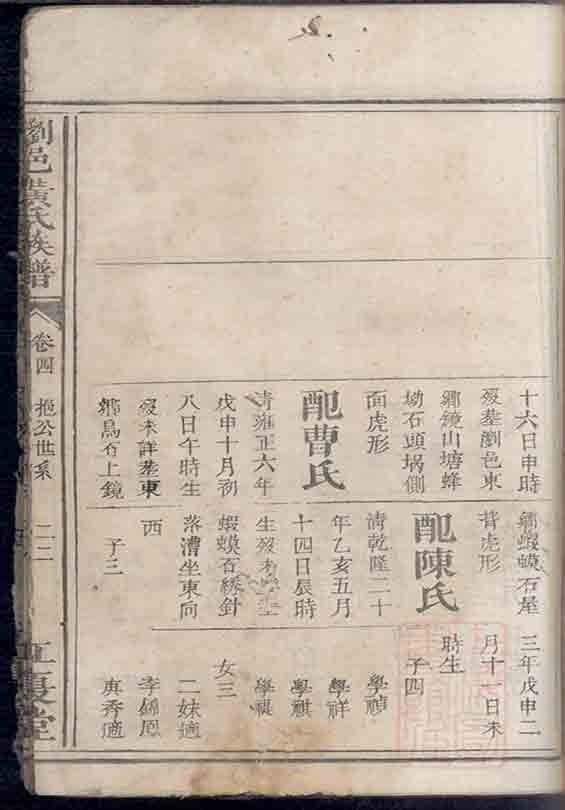 十六日申時
歿墓瀏邑東
鄉鏡山塘蜂
坳石頭塅側
面虎形
配曹氏
清雍正六年
戊申十月初
八日午時生
歿未詳墓東
鄉烏石上鏡
鄉蝦蟆石屋
背虎形
配陳氏
清乾隆二十
年乙亥五月
十四日辰時
生歿未
蝦蟆百綉針
落漕坐東向
西
子三
三年戊申二
月十一日未
時生
子四
學禎
學祥
學祺
學祺
女三
二妹適
李錦恩
庚秀適
瀏邑黃氏族譜
卷四
世系
二二
江夏堂